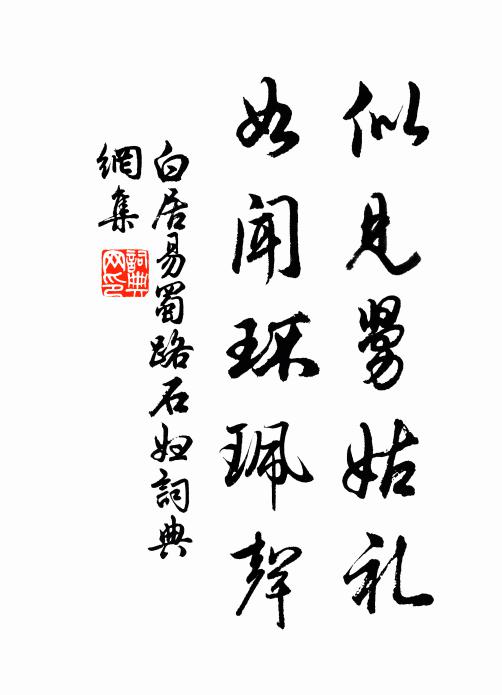 似見舅姑礼
如闻环珮聲
白居易蜀路石妇詞典
網集
詞典
网印